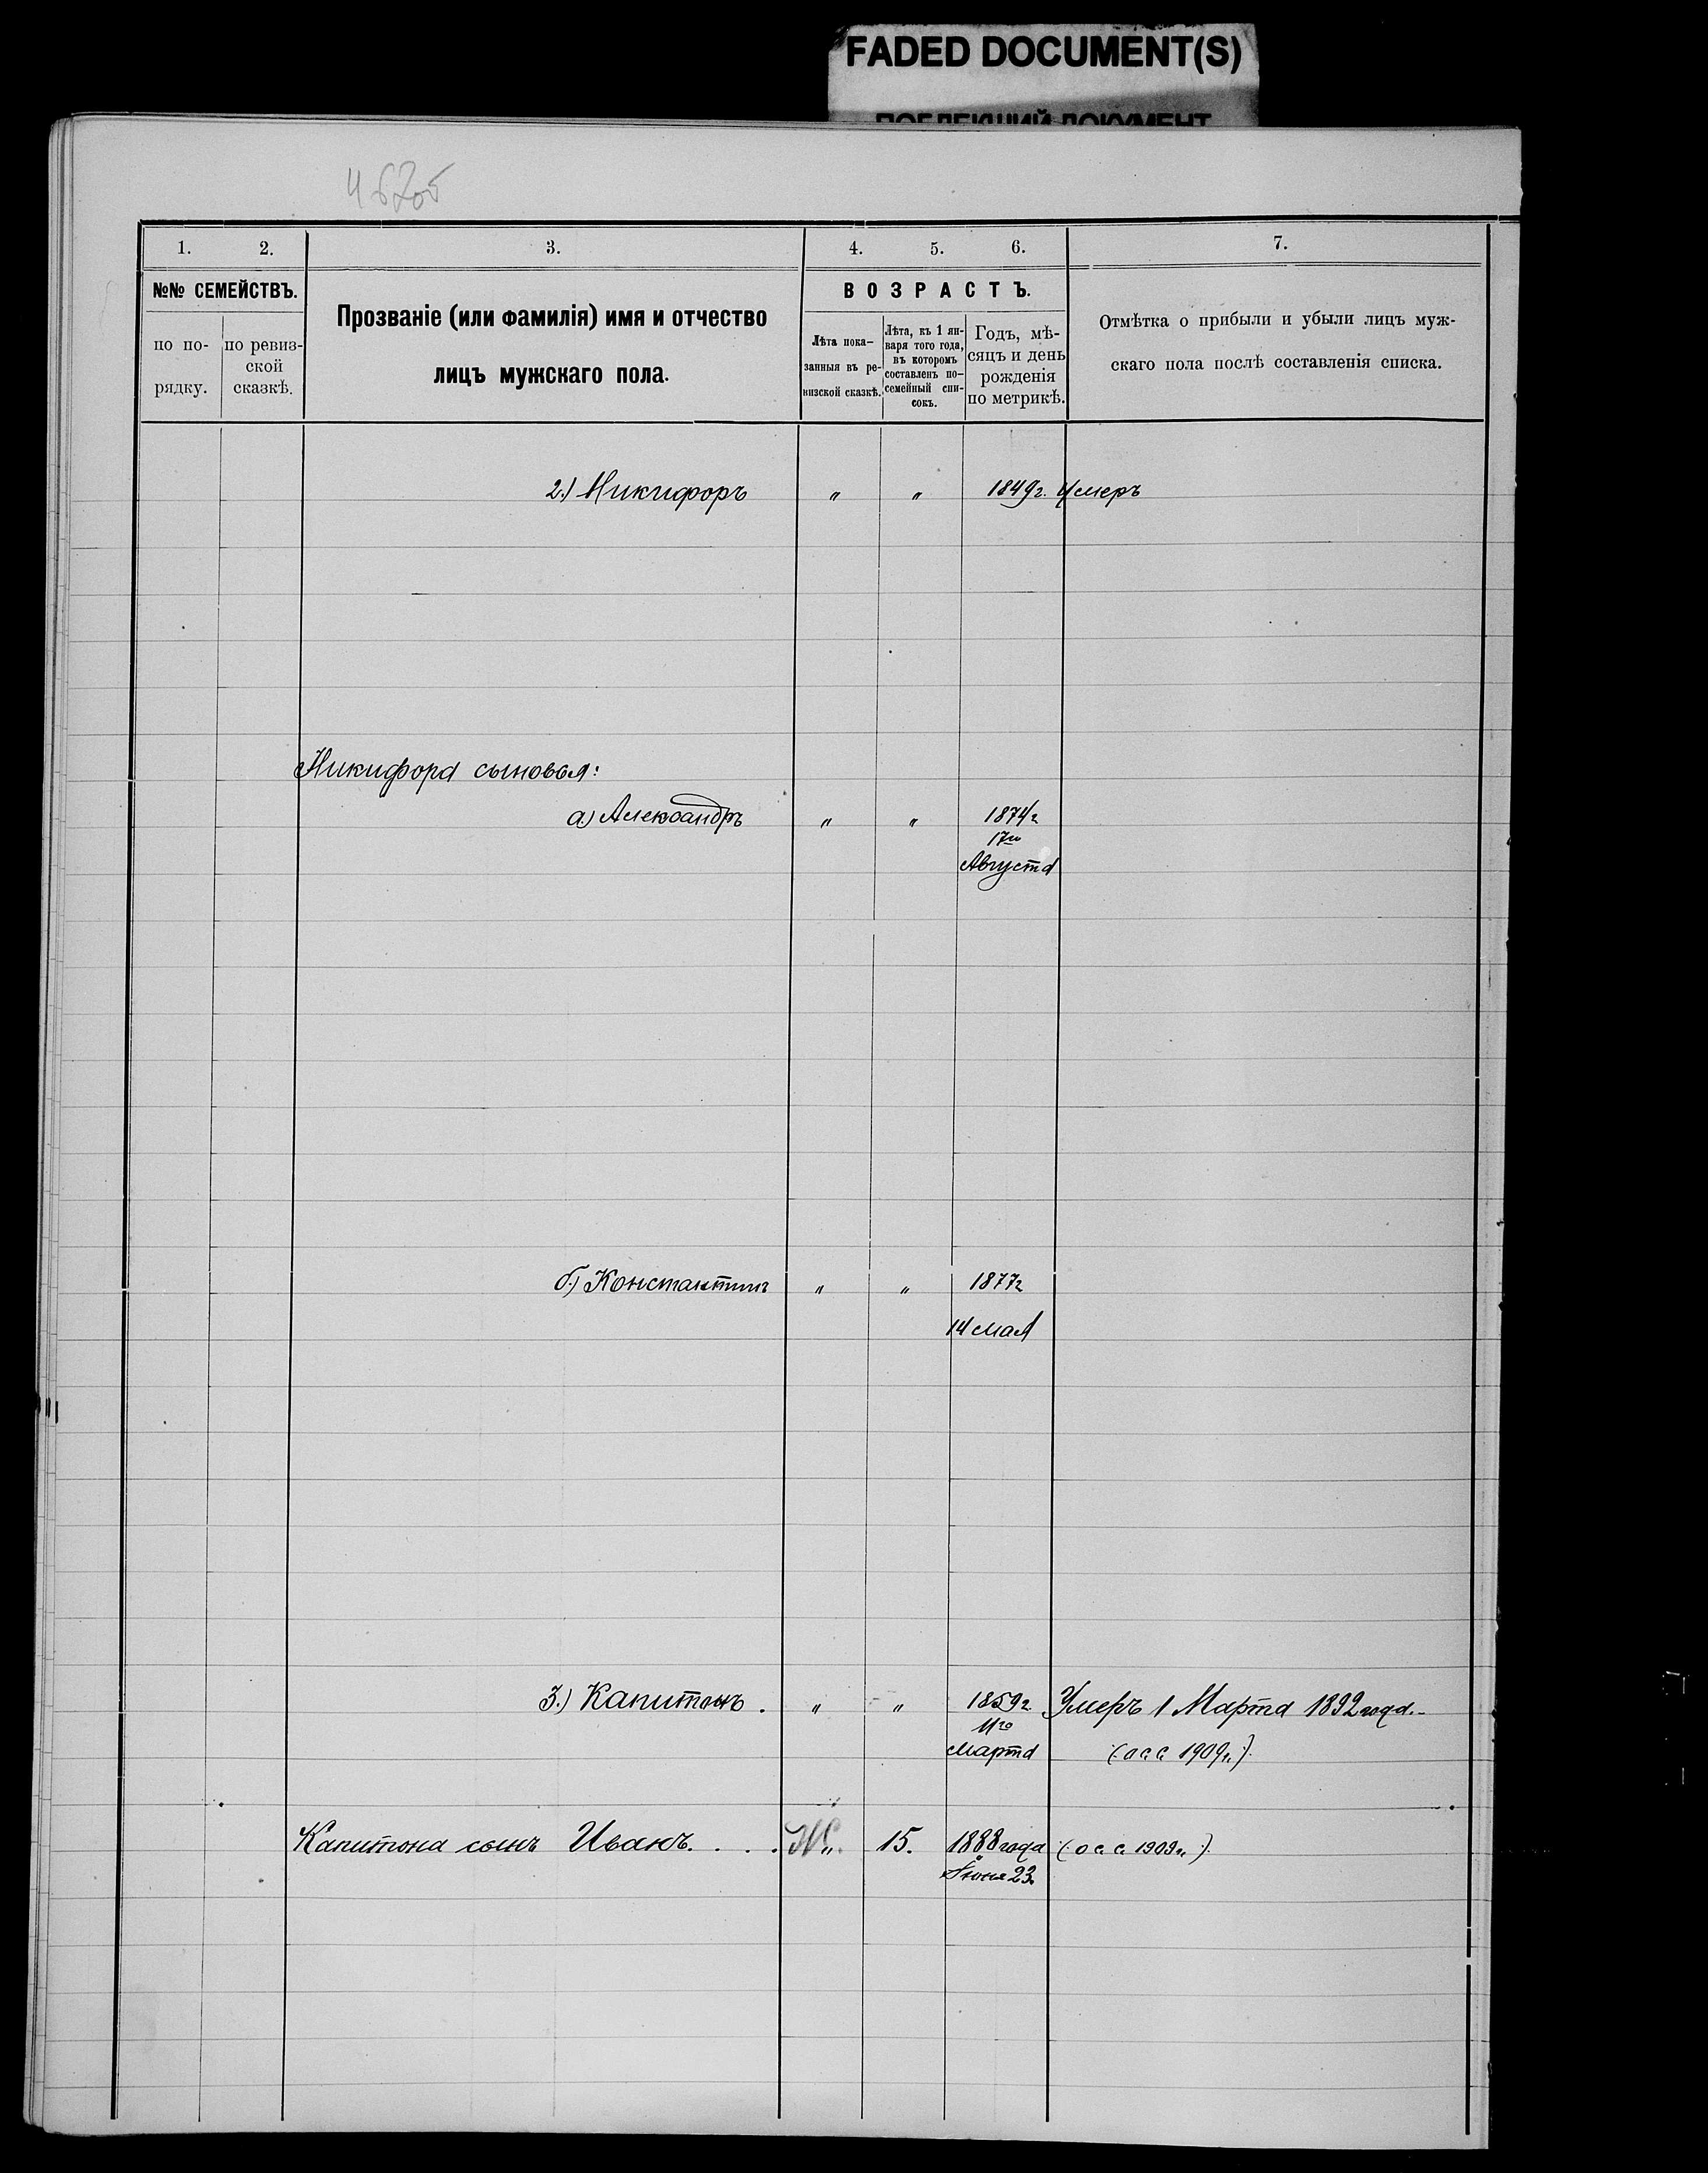 FADED DOCUMENT(S)
ПОБЛЕКШИЙ ДОКУМЕНТ
1. 2. 3. 4. 5. 6. 7.
№№ СЕМЕЙСТВЪ.
по по-
рядку.
по ревиз-
ской
сказкѣ.
Прозваніе (или фамилія) имя и отчество
лицъ мужскаго пола.
ВОЗРАСТЪ.
Лѣта пока-
занныя въ ре-
визской сказкѣ.
Лѣта, къ 1 ян-
варя того года,
въ которомъ
составленъ по-
семейный спи-
сокъ.
Годъ, мѣ-
сяцъ и день
рожденія
по метрикѣ.
Отмѣтка о прибыли и убыли лицъ муж-
скаго пола послѣ составленія списка.
2.) Никифоръ " " 1849г. Умеръ
Никифора сыновья:
а) Александръ " " 1874г
17го
Августа
б) Константинъ " " 1877г
14 мая
3.) Капитонъ . " " 1859г. Умеръ 1 Марта 1892 года.-
11го
Марта (: о с. с. 1909 г. :)
Капитона сынъ Иванъ. . . . " 15. 1888 года (: о с. с. 1909 г. :)
Іюня 23.